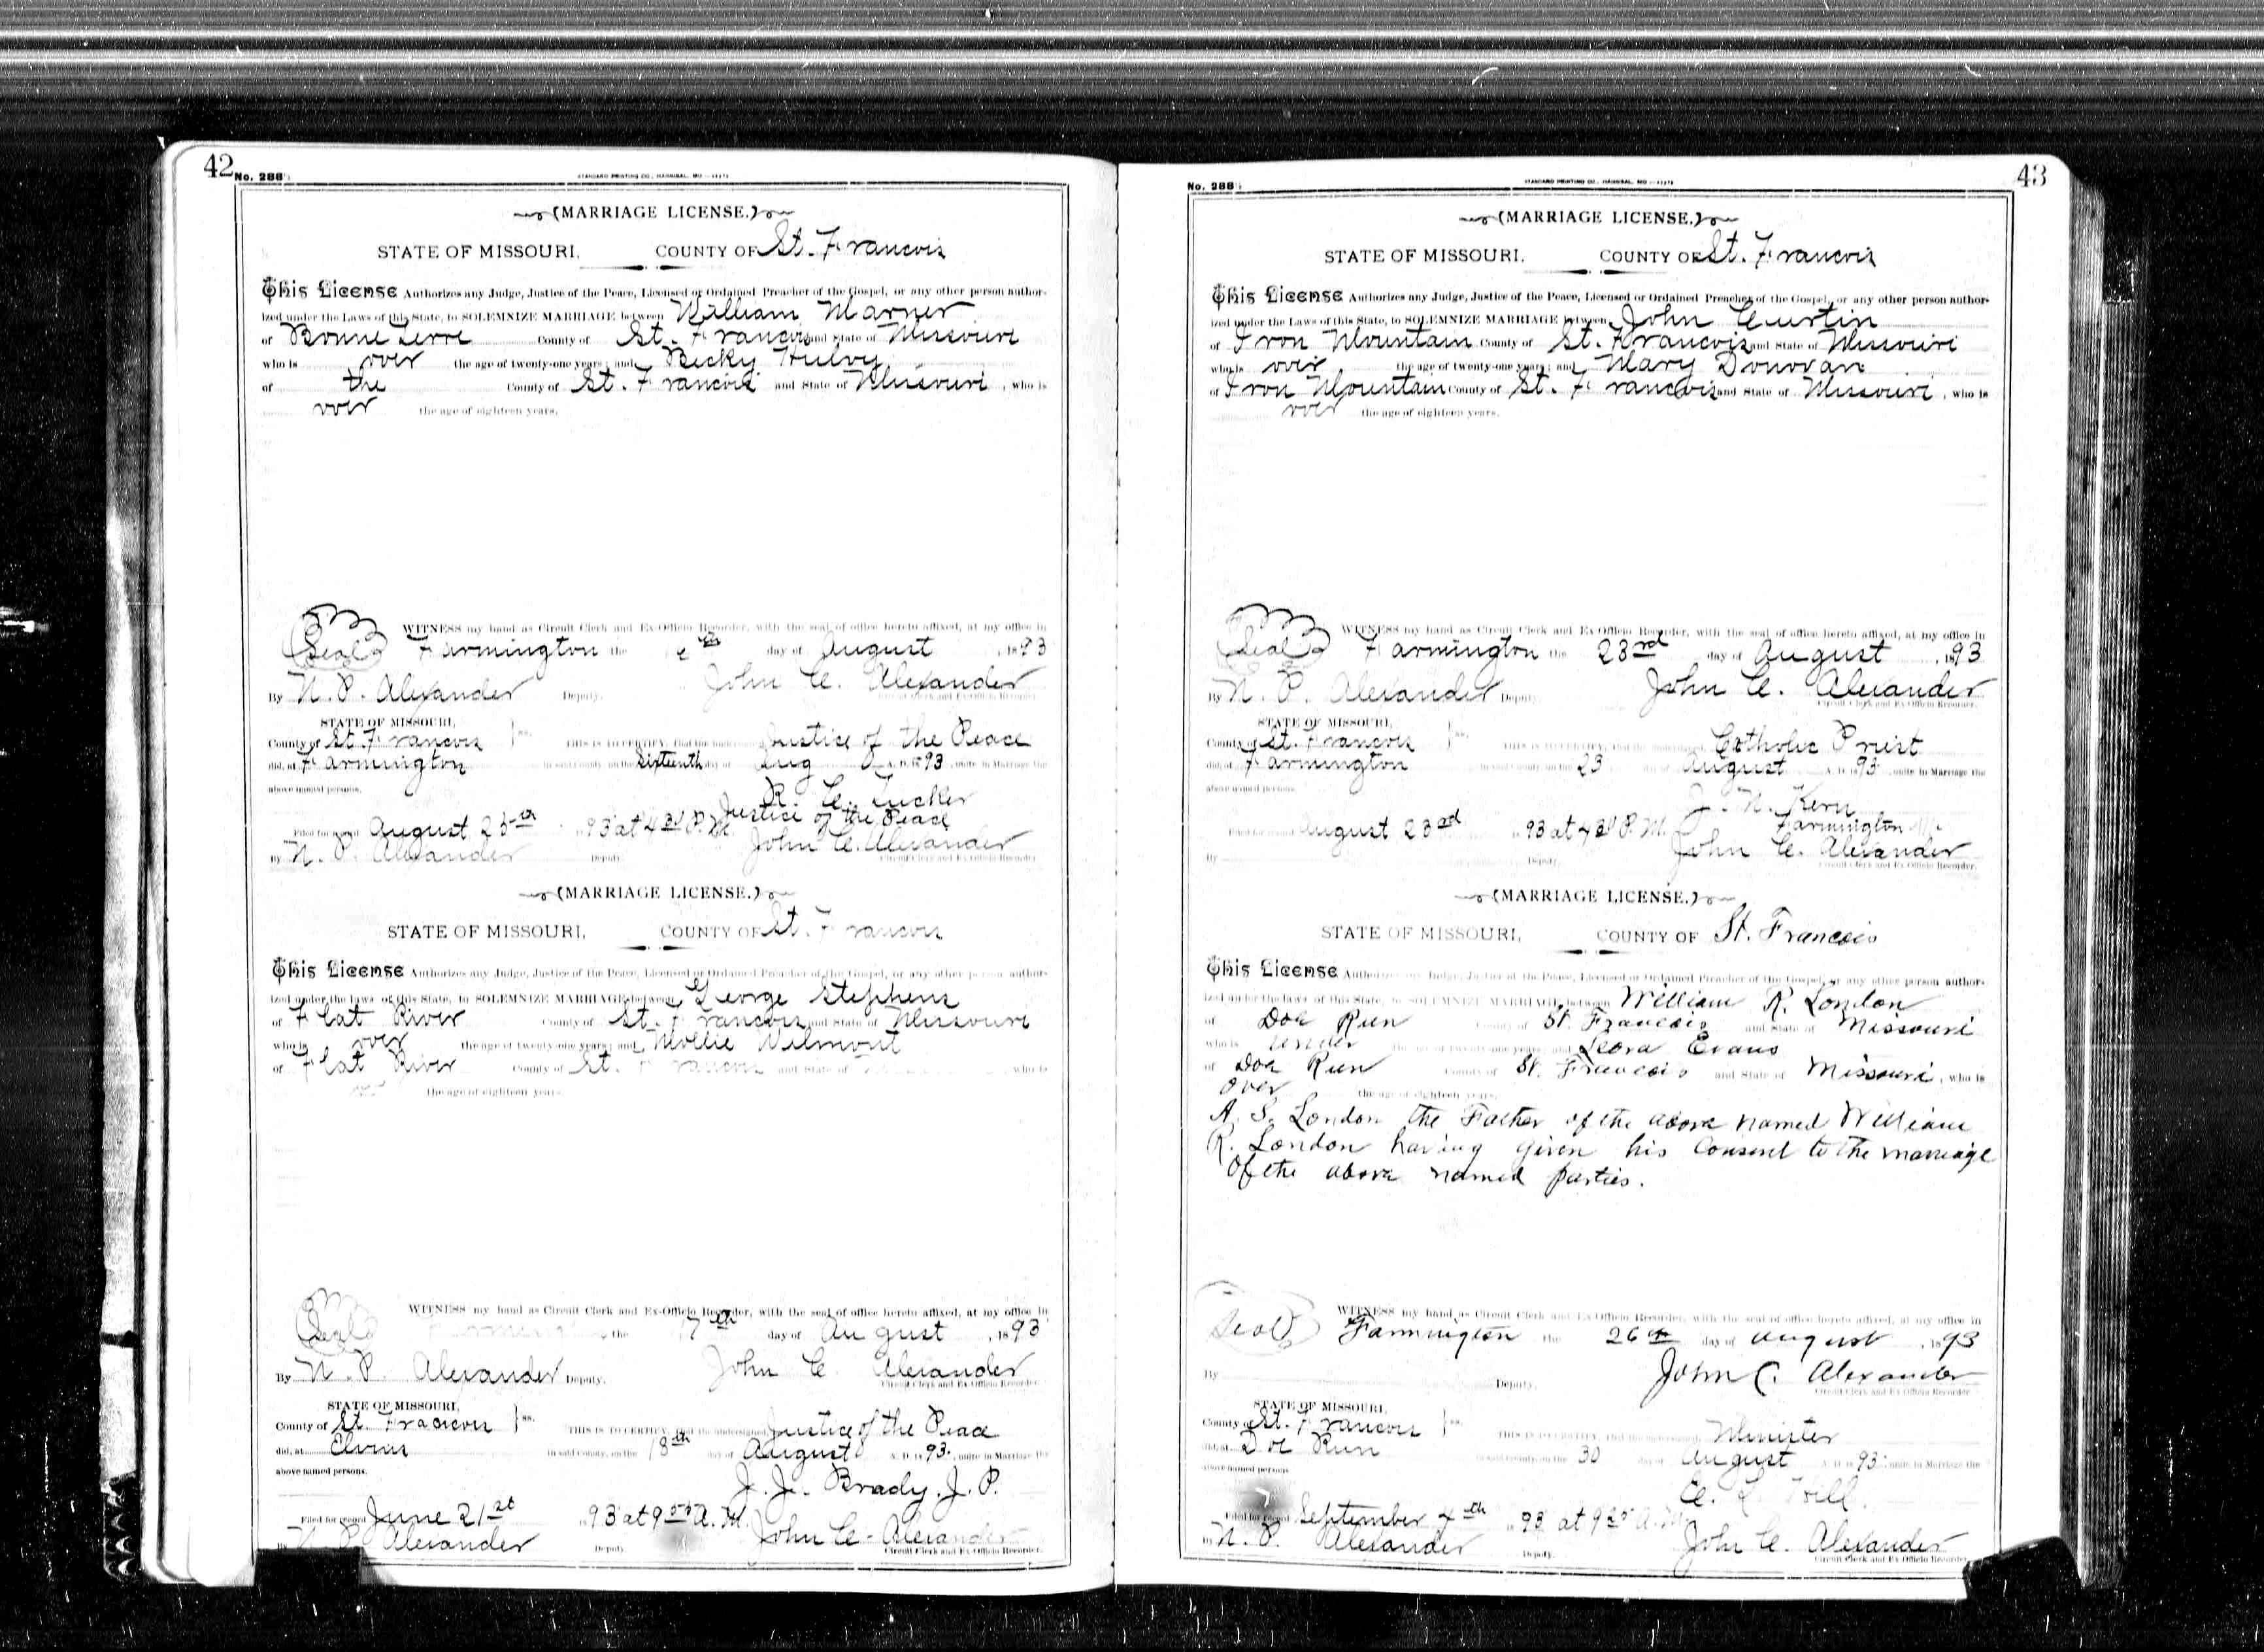 42
No. 288
STANDARD PRINTING CO., HANNIBAL, MO
(MARRIAGE LICENSE.)
STATE OF MISSOURI, COUNTY OF St. Francois
This License Authorizes any Judge, Justice of the Peace, Licensed or Ordained Preacher of the Gospel, or any other person author-
ized under the Laws of this State, to SOLEMNIZE MARRIAGE between William Marner
of Bonne Terre County of St. Francois and State of Missouri
who is over the age of twenty-one years; and Becky Hulvey
of the County of St. Francois and State of Missouri, who is
over the age of eighteen years.
WITNESS my hand as Circuit Clerk and Ex-Officio Recorder, with the seal of office hereto affixed, at my office in
Seal Farmington the day of August, 1893
By N. P. Alexander Deputy. John C. Alexander
Circuit Clerk and Ex-Officio Recorder.
STATE OF MISSOURI,
County of St. Francois ss. THIS IS TO CERTIFY, that the undersigned Justice of the Peace
did, at Farmington in said County, on the Sixteenth day of Aug A. D. 1893, unite in Marriage the
above named persons.
R. C. Tucker
Justice of the Peace
Filed for record August 25th 1893 at 4 30 P. M. John C. Alexander
By N. P. Alexander Deputy. Circuit Clerk and Ex-Officio Recorder
(MARRIAGE LICENSE.)
STATE OF MISSOURI, COUNTY OF St. Francois
This License Authorizes any Judge, Justice of the Peace, Licensed or Ordained Preacher of the Gospel, or any other person author-
ized under the laws of this State, to SOLEMNIZE MARRIAGE between George Stephens
of Flat River County of St. Francois and State of Missouri
who is over the age of twenty-one years; and Mollie Wilmont
of Flat River County of St. Francois and State of who is
over the age of eighteen years.
WITNESS my hand as Circuit Clerk and Ex-Officio Recorder, with the seal of office hereto affixed, at my office in
Seal the 17th day of August, 1893
By N. P. Alexander Deputy. John C. Alexander
Circuit Clerk and Ex-Officio Recorder.
STATE OF MISSOURI,
County of St. Francois ss. THIS IS TO CERTIFY, that the undersigned Justice of the Peace
did, at Elvins in said County, on the 18th day of August A. D. 1893, unite in Marriage the
above named persons.
J. J. Brady. J. P.
Filed for record June 21st 1893 at 9 A. M. John C. Alexander
By N. P. Alexander Deputy Circuit Clerk and Ex-Officio Recorder.
43
No. 288
STANDARD PRINTING CO., HANNIBAL, MO
(MARRIAGE LICENSE,)
STATE OF MISSOURI, COUNTY OF St. Francois
This License Authorizes any Judge, Justice of the Peace, Licensed or Ordained Preacher of the Gospel, or any other person author-
ized under the Laws of this State, to SOLEMNIZE MARRIAGE between John Curtin
of Iron Mountain County of St. Francois and State of Missouri
who is over the age of twenty-one years; and Mary Donovan
of Iron Mountain County of St. Francois and State of Missouri, who is
over the age of eighteen years.
WITNESS my hand as Circuit Clerk and Ex-Officio Recorder, with the seal of office hereto affixed, at my office in
Seal Farmington the 23rd day of August, 1893
By N. P. Alexander Deputy. John C. Alexander
Circuit Clerk and Ex-Officio Recorder.
STATE OF MISSOURI,
County of St. Francois ss. THIS IS TO CERTIFY, that the undersigned Catholic Priest
did, at Farmington in said County, on the 23 day of August A. D. 1893, unite in Marriage the
above named persons.
J. N. Kern
Farmington Mo.
Filed for record August 23rd 1893 at 4 30 P. M. John C. Alexander
By Deputy. Circuit Clerk and Ex-Officio Recorder.
(MARRIAGE LICENSE.)
STATE OF MISSOURI, COUNTY OF St. Francois
This License Authorizes any Judge, Justice of the Peace, Licensed or Ordained Preacher of the Gospel, or any other person author-
ized under the laws of this State, to SOLEMNIZE MARRIAGE between William R. London
of Doe Run County of St. Francois and State of Missouri
who is Under the age of twenty-one years; and Leora Evans
of Doe Run County of St. Francois and State of Missouri, who is
Over the age of eighteen years.
A. S. London the Father of the above named William
R. London having given his Consent to the marriage
Of the above named parties.
WITNESS my hand as Circuit Clerk and Ex-Officio Recorder, with the seal of office hereto affixed, at my office in
Seal Farmington the 26th day of August, 1893
By Deputy. John C. Alexander
Circuit Clerk and Ex-Officio Recorder
STATE OF MISSOURI,
County of St. Francois ss. THIS IS TO CERTIFY, that the undersigned Minister
did, at Doe Run in said County, on the 30 day of August A. D. 1893, unite in Marriage the
above named persons
Filed for record September 4th 1893 at 9 A. M.
By N. P. Alexander Deputy. John C. Alexander
Circuit Clerk and Ex-Officio Recorder